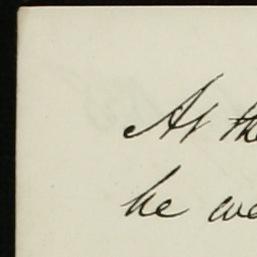 At the
he we